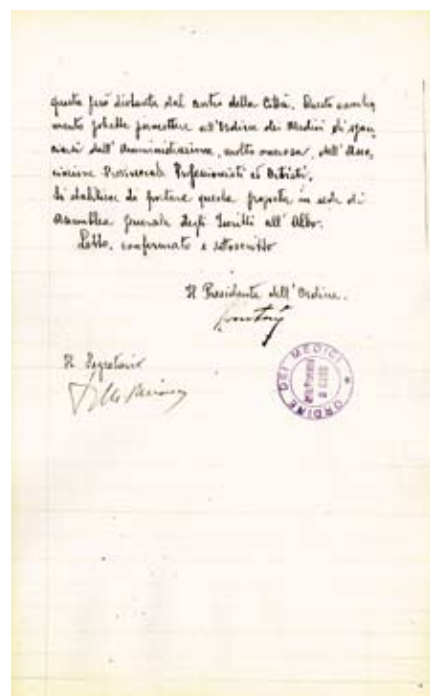 questa però distante dal centro della Città. Questo cambia
mento potrebbe permettere all'Ordine dei Medici di sgan
ciarsi dall'Amministrazione, molto onerosa, dell'Asso
ciazione Provinciale Professionisti ed Artisti.
Si stabilisce di portare questa proposta in sede di
Assemblea Generale degli Iscritti all'Albo.
Letto, confermato e sottoscritto
Il Presidente dell'Ordine.
Il Segretario
ORDINE DEI MEDICI